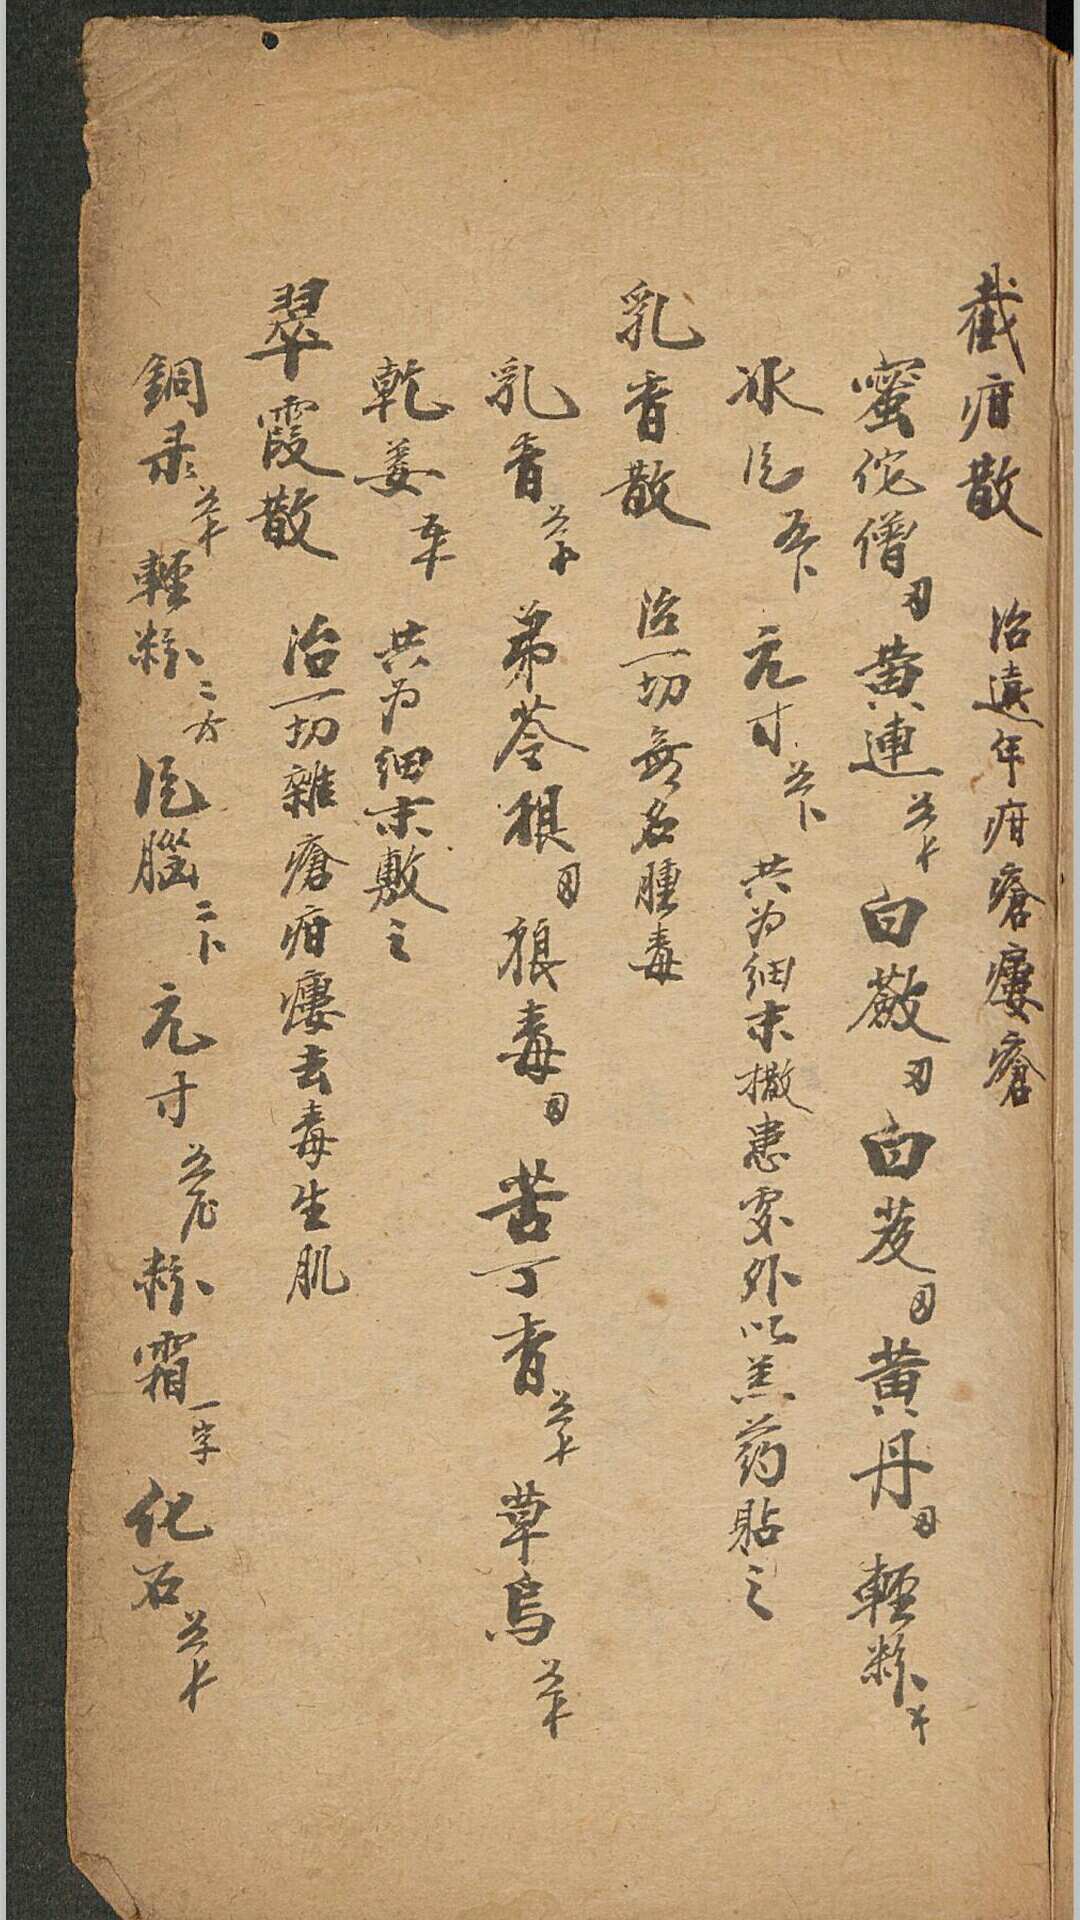 截疳散 治遠年疳瘡瘻瘡
蜜佗僧 黃連 白蘞 白芨 黃丹 輕粉
冰片 元寸 共为細末撒患處外以羔药貼之
乳香散 治一切無名腫毒
乳香 苐苓根 狼毒 苦丁香 草烏
乾姜 共为細末敷之
翠霞散 治一切雜瘡疳瘻去毒生肌
銅录 輕粉二 片腦二 元寸 粉霜一字 化石